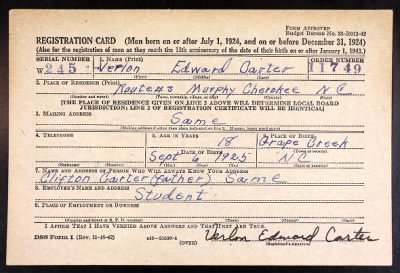 Form Approved
Budget Bureau No. 33-R012-42
REGISTRATION CARD—(Men born on or after July 1, 1924, and on or before December 31, 1924)
(Also for the registration of men as they reach the 18th anniversary of the date of their birth on or after January 1, 1943.)
SERIAL NUMBER
1. NAME (Print)
ORDER NUMBER
W 245
Verlon Edward Carter
11749
(First) (Middle) (Last)
2. PLACE OF RESIDENCE (Print)
Route #3 Murphy Cherokee N C
(Number and street) (Town) (County) (State)
[THE PLACE OF RESIDENCE GIVEN ON LINE 2 ABOVE WILL DETERMINE LOCAL BOARD
JURISDICTION; LINE 2 OF REGISTRATION CERTIFICATE WILL BE IDENTICAL]
3. MAILING ADDRESS
Same
4. TELEPHONE
5. AGE IN YEARS
6. PLACE OF BIRTH
18
Grape Creek
DATE OF BIRTH
Sept 6 1925
N C
(Exchange) (Number) (Mo.) (Day) (Yr.) (State or country)
7. NAME AND ADDRESS OF PERSON WHO WILL ALWAYS KNOW YOUR ADDRESS
Clifton Carter (father) Same
8. EMPLOYER'S NAME AND ADDRESS
Student
9. PLACE OF EMPLOYMENT OR BUSINESS
(Number and street or R. F. D. number) (Town) (County) (State)
I AFFIRM THAT I HAVE VERIFIED ABOVE ANSWERS AND THAT THEY ARE TRUE.
DSS Form 1 (Rev. 11-16-42)
(OVER)
Verlon Edward Carter
(Registrant's signature)